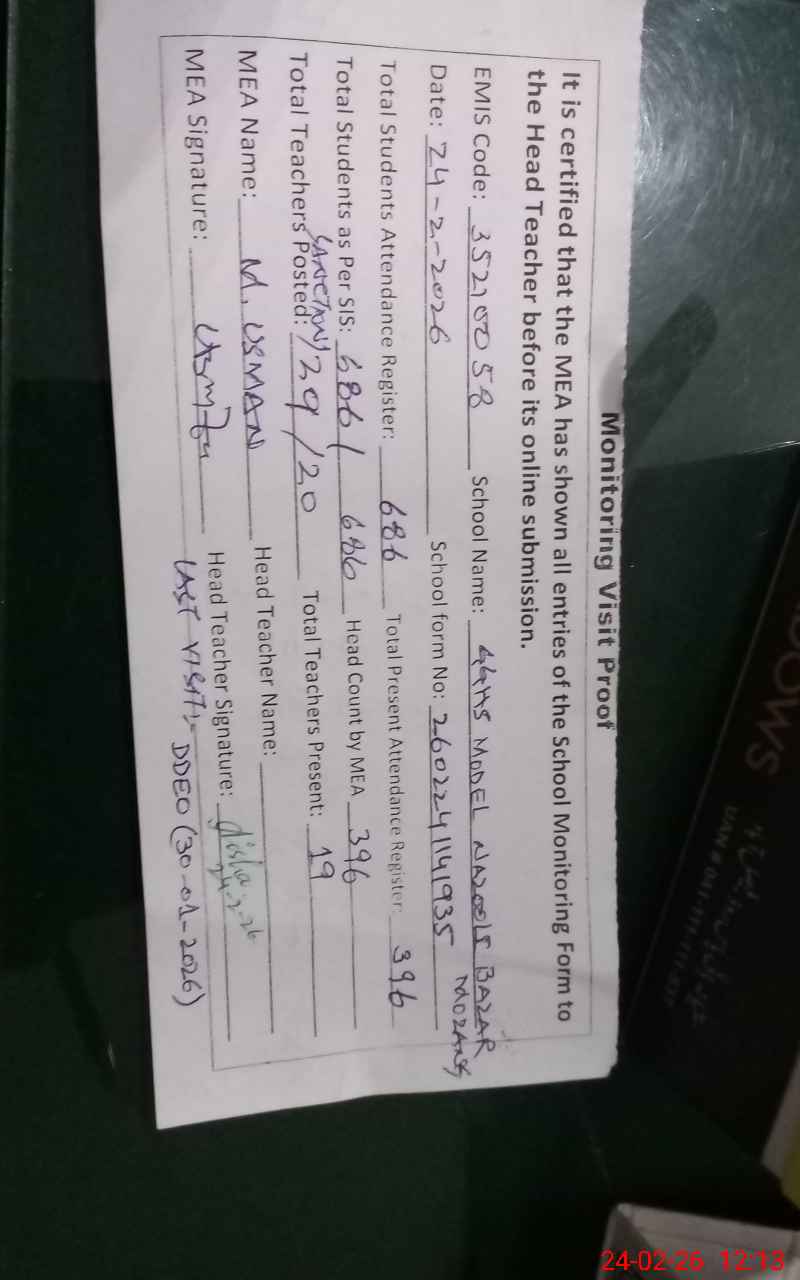 Monitoring Visit Proof
It is certified that the MEA has shown all entries of the School Monitoring Form to
the Head Teacher before its online submission.
EMIS Code: 35210058 School Name: GGHS MODEL BAZAR
MOZANG
Date: 24-2-2026 School form No: 2602241141935
Total Students Attendance Register: 686 Total Present Attendance Register: 396
Total Students as Per SIS: 686 / 686 Head Count by MEA 396
Total Teachers Posted: 29 / 20 Total Teachers Present: 19
MEA Name: M. USMAN Head Teacher Name:
MEA Signature: Head Teacher Signature:
LAST VISIT:- DDEO (30-01-2026)
DOWS
24-02-26 12:13